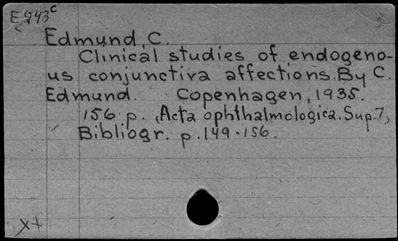 E943c
c
Edmund, C.
Clinical studies of endogeno-
us conjunctiva affections. By C.
Edmund. Copenhagen, 1935.
156 p. (Acta ophthalmologica. Sup. 7)
Bibliogr. p. 149-156.